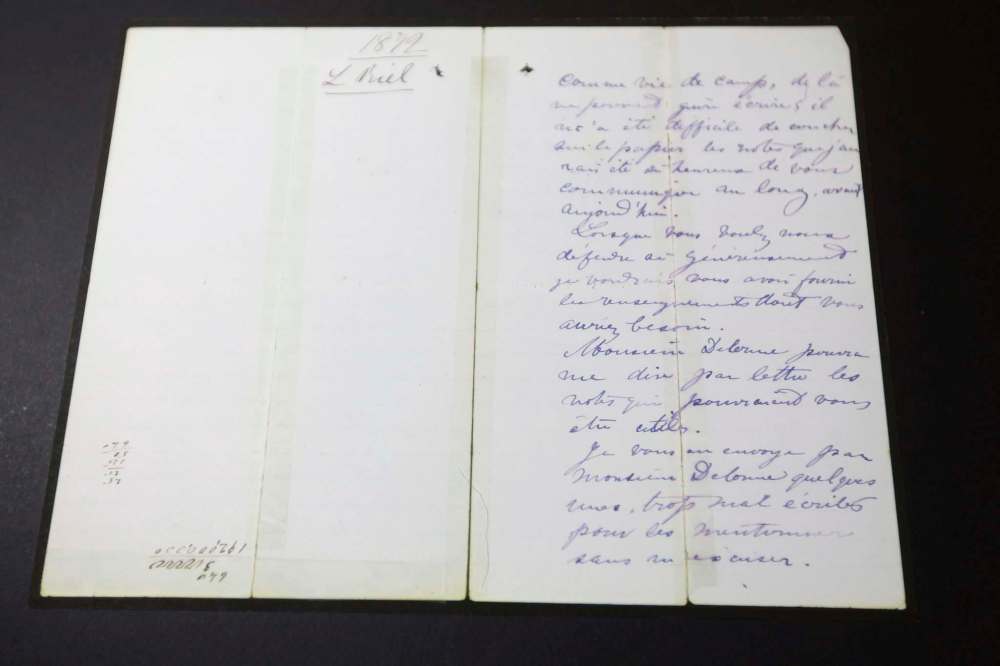 1879
L Riel
comme vie de camp, de là
ne pouvant qu'en écrire, il
m'a été difficile de coucher
sur le papier les notes que j'au
rais été si heureux de vous
communiquer au long, avant
aujourd'hui.
Lorsque vous voulez nous
défendre si généreusement
je voudrais vous avoir fourni
les renseignements dont vous
auriez besoin.
Monsieur Delorme pourra
me dire par lettre les
notes qui pourraient vous
être utiles.
Je vous en envoye par
Monsieur Delorme quelques
unes, trop mal écrites
pour les mentionner
sans m'excuser.